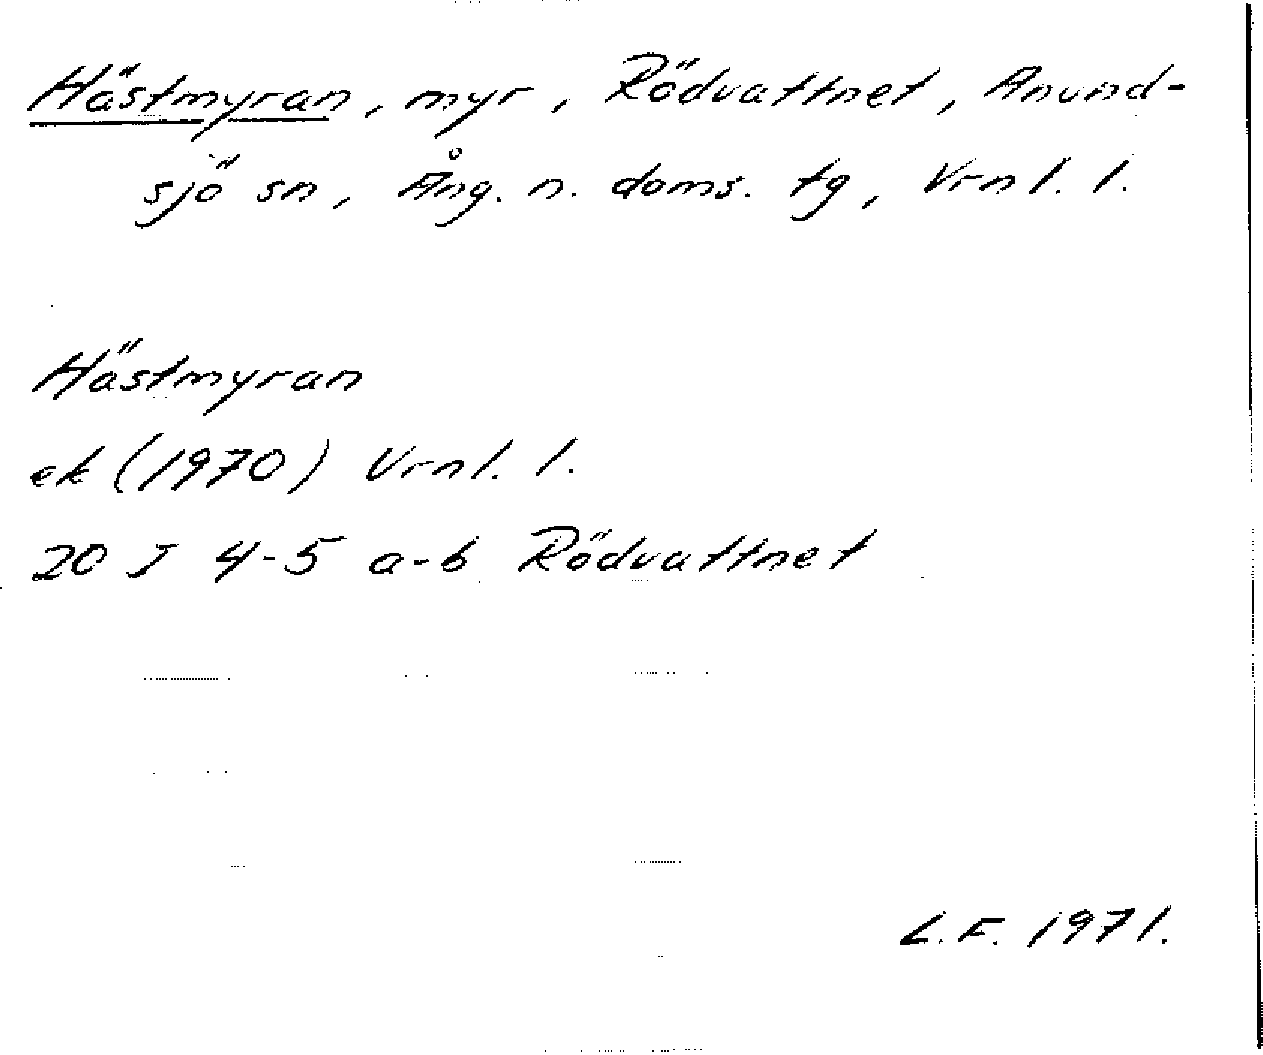 Hästmyran, myr, Rödvattnet, Anund-
sjö sn, Ång. n. doms. tg, Vrnl. l.
Hästmyran
ek (1970) Vrnl. l.
20 J 4-5 a-b Rödvattnet
L.F. 1971.